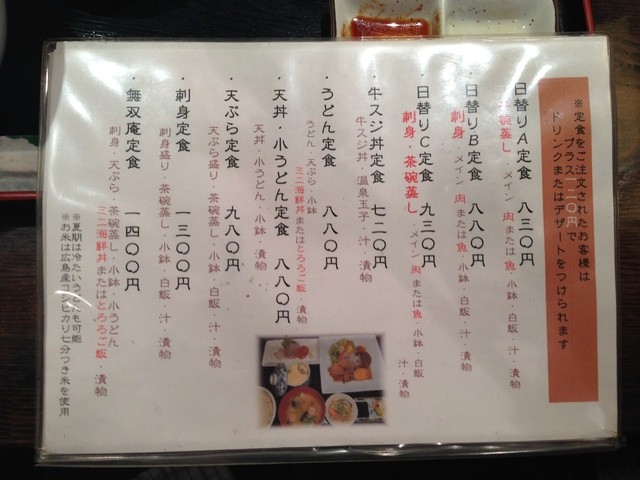 ※定食をご注文されたお客様は
プラス一二〇円で
ドリンクまたはデザートをつけられます
日替りA定食 八三〇円
茶碗蒸し・メイン 肉または魚・小鉢・白飯・汁・漬物
・日替りB定食 八八〇円
刺身・メイン 肉または魚・小鉢・白飯・汁・漬物
・日替りC定食 九三〇円
刺身・茶碗蒸し・メイン 肉または魚・小鉢・白飯
汁・漬物
・牛スジ丼定食 七二〇円
牛スジ丼・温泉玉子・汁・漬物
・うどん定食 八八〇円
うどん・天ぷら・小鉢
ミニ海鮮丼またはとろろご飯・漬物
・天丼・小うどん定食 八八〇円
天丼・小うどん・小鉢・漬物
・天ぷら定食 九八〇円
天ぷら盛り・茶碗蒸し・小鉢・白飯・汁・漬物
・刺身定食 一三〇〇円
刺身盛り・茶碗蒸し・小鉢・白飯・汁・漬物
・無双庵定食 一四〇〇円
刺身・天ぷら・茶碗蒸し・小鉢・小うどん
ミニ海鮮丼またはとろろご飯・漬物
※夏期は冷たいうどんも可能
※お米は広島産コシヒカリ七分つき米を使用